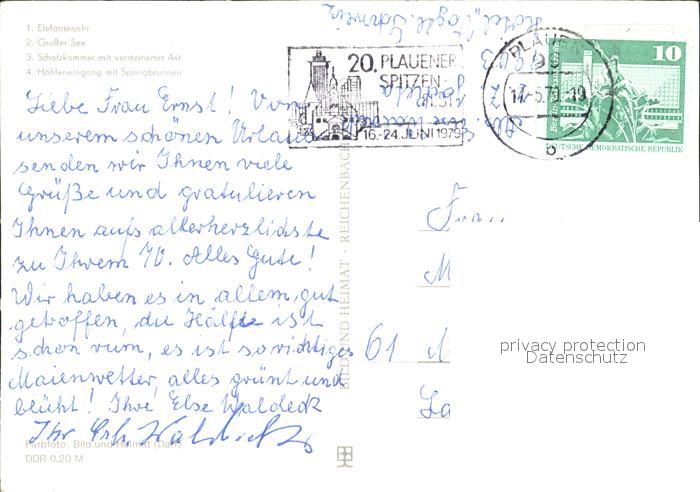 1. Elefantenohr
2. Großer See
3. Schatzkammer mit versteinerter Axt
4. Höhleneingang mit Springbrunnen
20. PLAUENER
SPITZEN-
FEST
16.-24. JUNI 1979
PLAUEN
14.-5.79-19
b
10
DEUTSCHE DEMOKRATISCHE REPUBLIK
Liebe Frau Ernst! Von
unserem schönen Urlaub
senden wir Ihnen viele
Grüße und gratulieren
Ihnen aufs allerherzlichste
zu Ihrem 70. Alles Gute!
Wir haben es in allem gut
getroffen, die Hälfte ist
schon rum, es ist so richtiges
Maienwetter, alles grünt und
blüht! Ihre Else Waldeck
Ihr
Farbfoto: Bild und Heimat (Darr)
DDR 0.20 M
BILD UND HEIMAT · REICHENBACH
Frau
M
61 M
La
privacy protection
Datenschutz